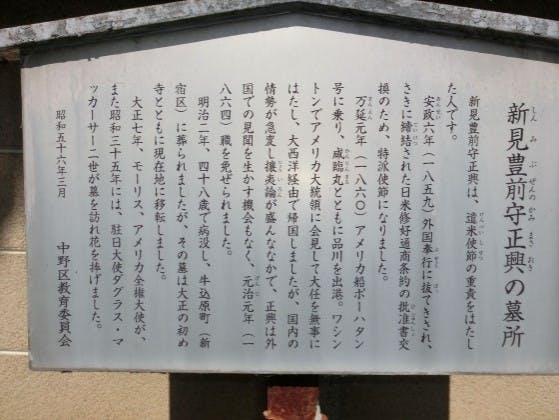 新見豊前守正興の墓所
しんみぶぜんのかみまさおき
新見豊前守正興は、遣米使節の重責をはたし
けんべいしせつ
た人です。
安政六年（一八五九）外国奉行に抜てきされ、
あんせい
ぶぎょう
ばつ
さきに締結された日米修好通商条約の批准書交
ていけつ
ひじゅんしょ
換のため、特派使節になりました。
万延元年（一八六〇）アメリカ船ポーハタン
まんえん
号に乗り、咸臨丸とともに品川を出港。ワシン
かんりんまる
トンでアメリカ大統領に会見して大任を無事に
はたし、大西洋経由で帰国しましたが、国内の
情勢が急変し攘夷論が盛んななかで、正興は外
じょういろん
国での見聞を生かす機会もなく、元治元年（一
げんじ
八六四）職を免ぜられました。
明治二年、四十八歳で病没し、牛込原町（新
宿区）に葬られましたが、その墓は大正の初め
寺とともに現在地に移転しました。
大正七年、モーリス、アメリカ全権大使が、
また昭和三十五年には、駐日大使ダグラス・マ
ッカーサー二世が墓を訪れ花を捧げました。
昭和五十六年三月
中野区教育委員会